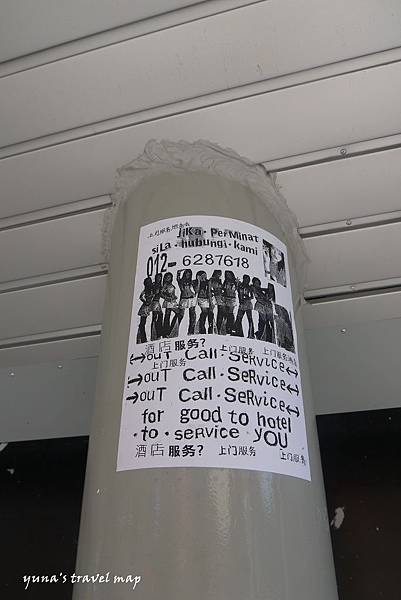 上门服务
JiKa · PerMinat
siLa · hubungi · kami
012- 6287618
酒店服务? 上门服务 上门服务
↔ouT Call-SeRvice↔
上门服务
→ouT Call·SeRvice↔
→ouT Call·SeRvice↔
for good to hotel
·to·seRvice YOU
酒店服务? 上门服务 上门服务
yuna's travel map